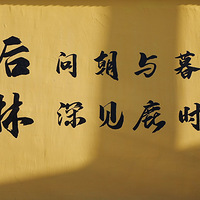 后问朝与暮
林深见鹿时